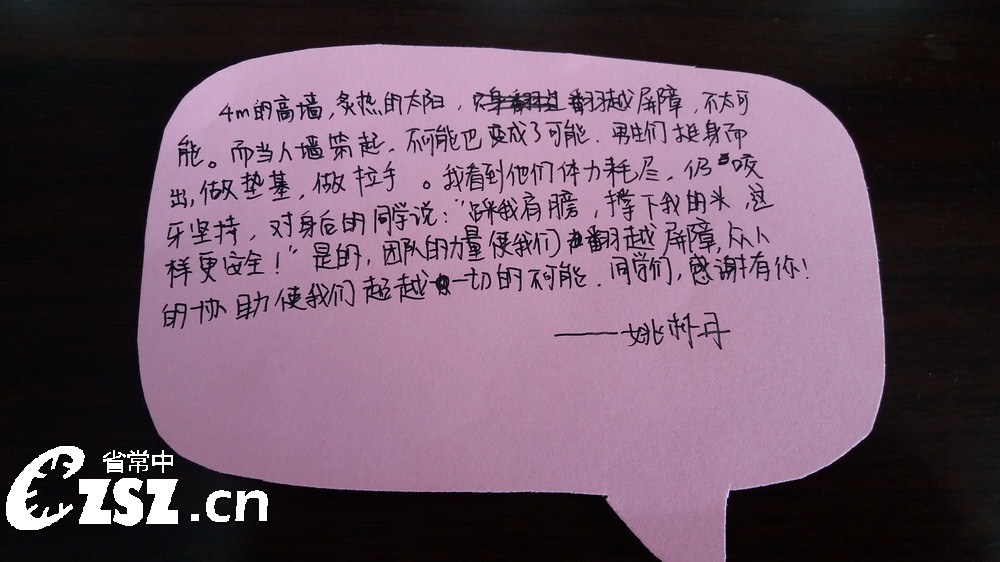 4m的高墙，炙热的太阳，翻越屏障，不太可
能。而当人墙筑起，不可能也变成了可能．男生们挺身而
出，做垫基，做拉手。我看到他们体力耗尽，仍咬
牙坚持，对身后的同学说：“踩我肩膀，撑下我的头，这
样更安全！”是的，团队的力量使我们翻越屏障，众人
的协助使我们超越一切的不可能．同学们，感谢有你！
——姚
省常中
CZSZ.cn